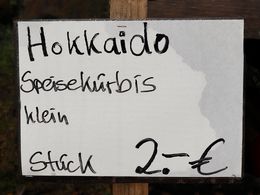 Hokkaido
Speisekürbis
klein
Stück 2.-€